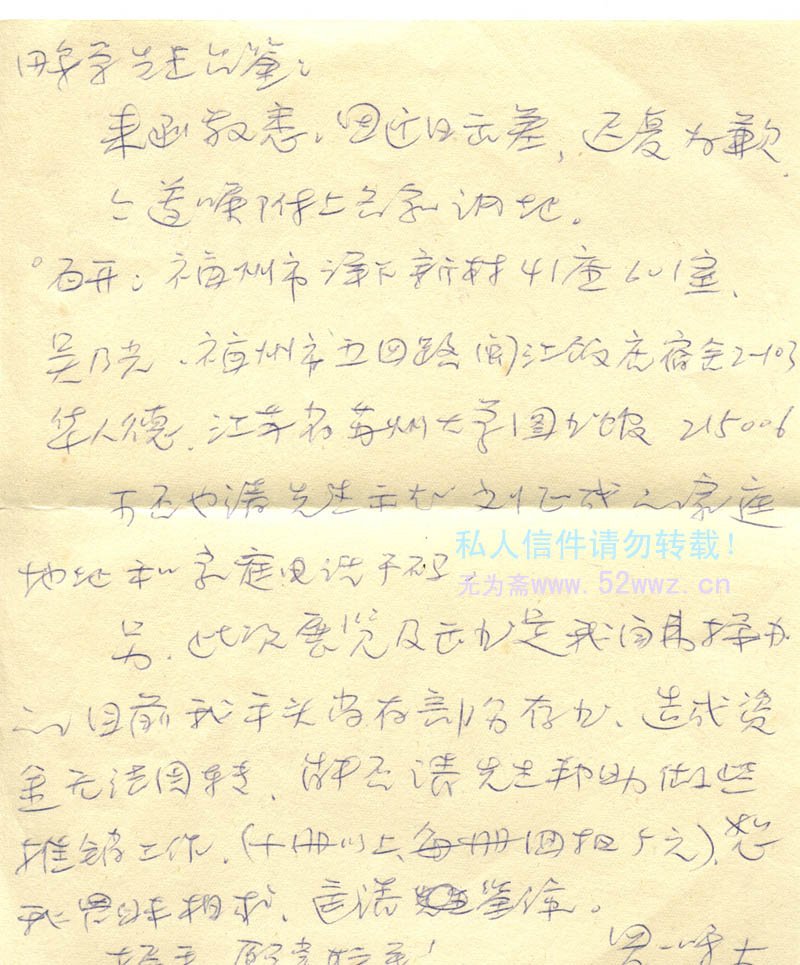 先生台鉴：
来函敬悉。因近日出差，迟复为歉。
今遵嘱附上各家调地。
石开：福州市洋下新村41座601室，
吴乃光、福州市五四路闽江饭店宿舍2-103
华人德、江苏省苏州大学图书馆 215006
可否也请先生示知 家庭
地址和家庭电话号码
另，此次展览及出书是我自己操办
的目前我手头尚存部分存书、造成资
金无法周转，能否请先生帮助做些
推销工作，（十册以上每册回扣5元）恕
我冒昧相求，还请鉴谅。
私人信件请勿转载！
无为斋www.52wwz.cn